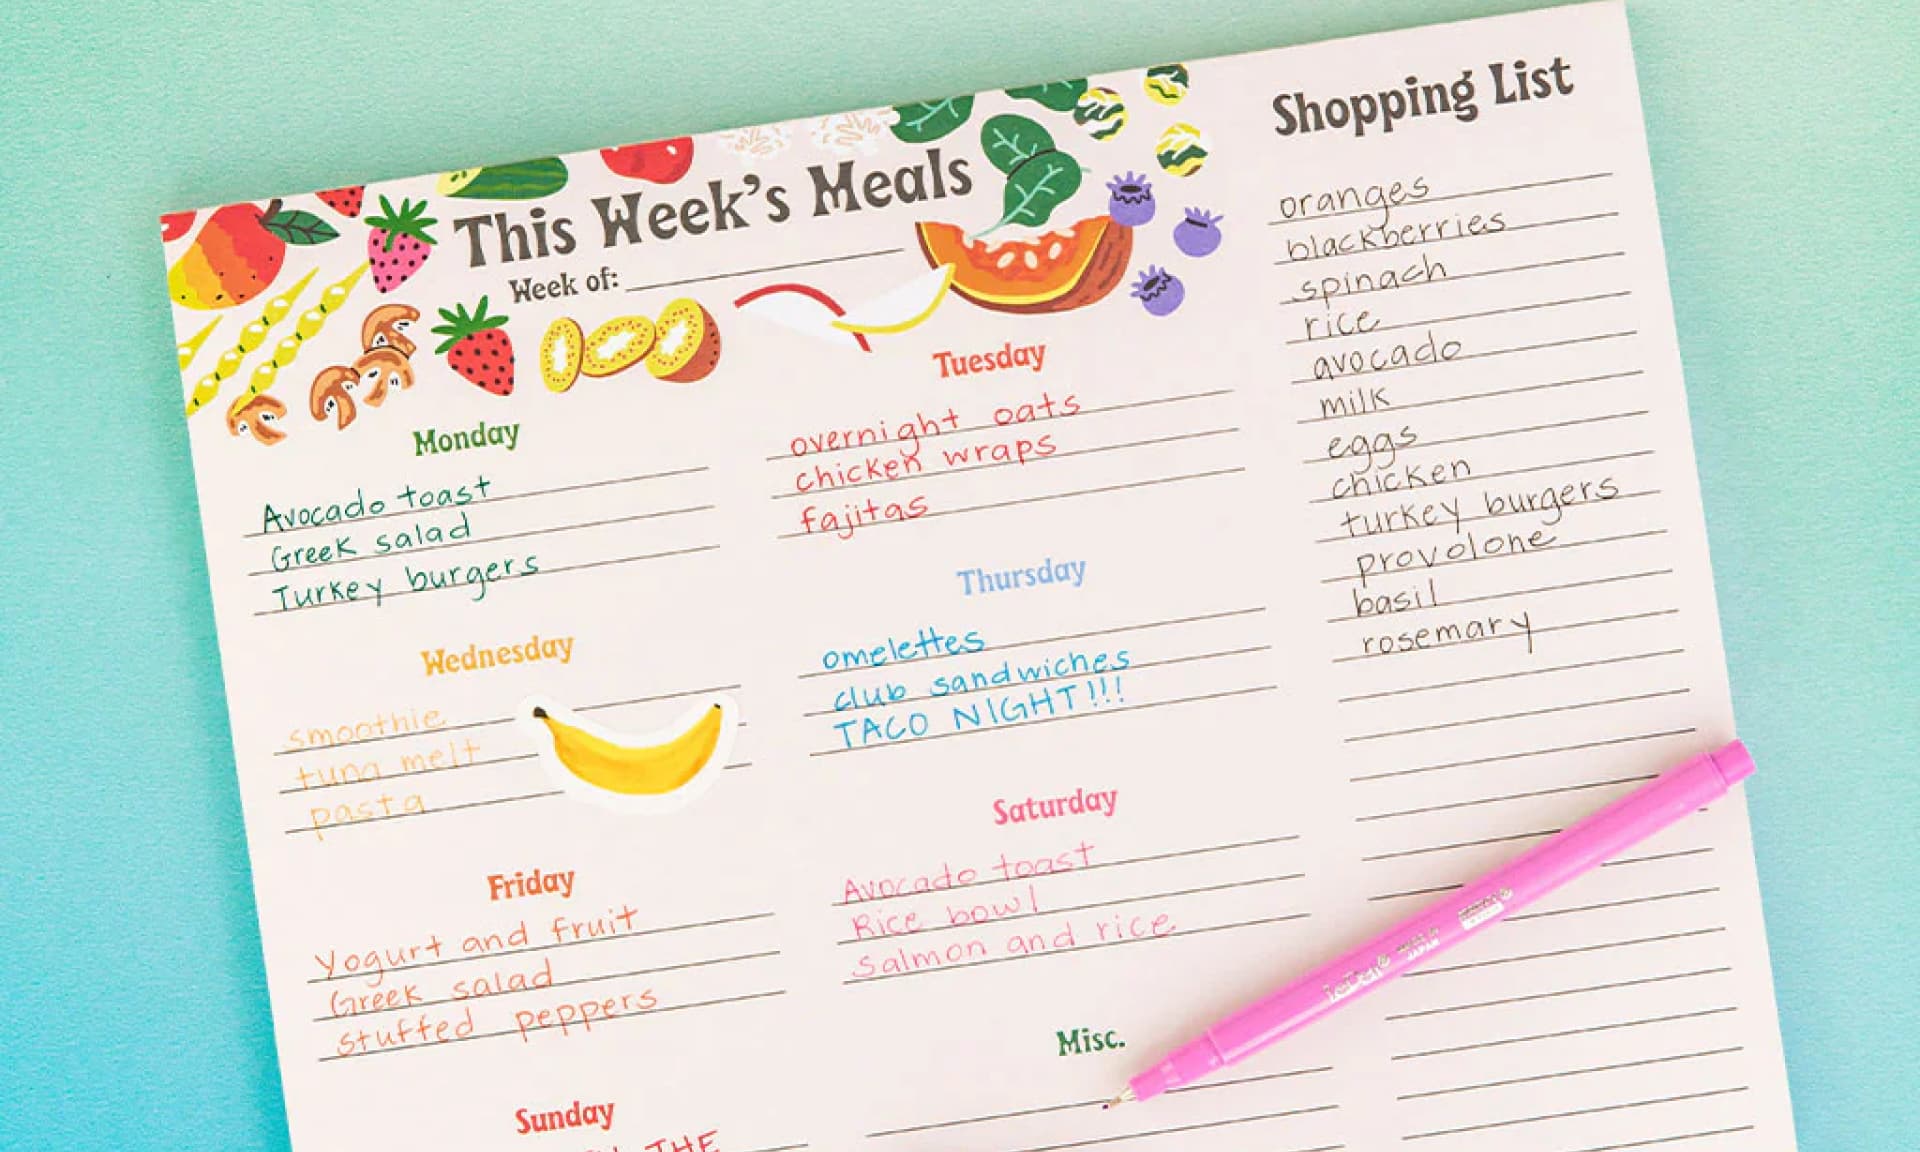 This Week's Meals
Week of:
Monday
Avocado toast
Greek salad
Turkey burgers
Tuesday
overnight oats
chicken wraps
fajitas
Wednesday
smoothie
tuna melt
pasta
Thursday
omelettes
club sandwiches
TACO NIGHT!!!
Friday
Yogurt and fruit
Greek salad
stuffed peppers
Saturday
Avocado toast
Rice bowl
Salmon and rice
Sunday
THE
Misc.
Shopping List
oranges
blackberries
spinach
rice
avocado
milk
eggs
chicken
turkey burgers
provolone
basil
rosemary
JAPAN